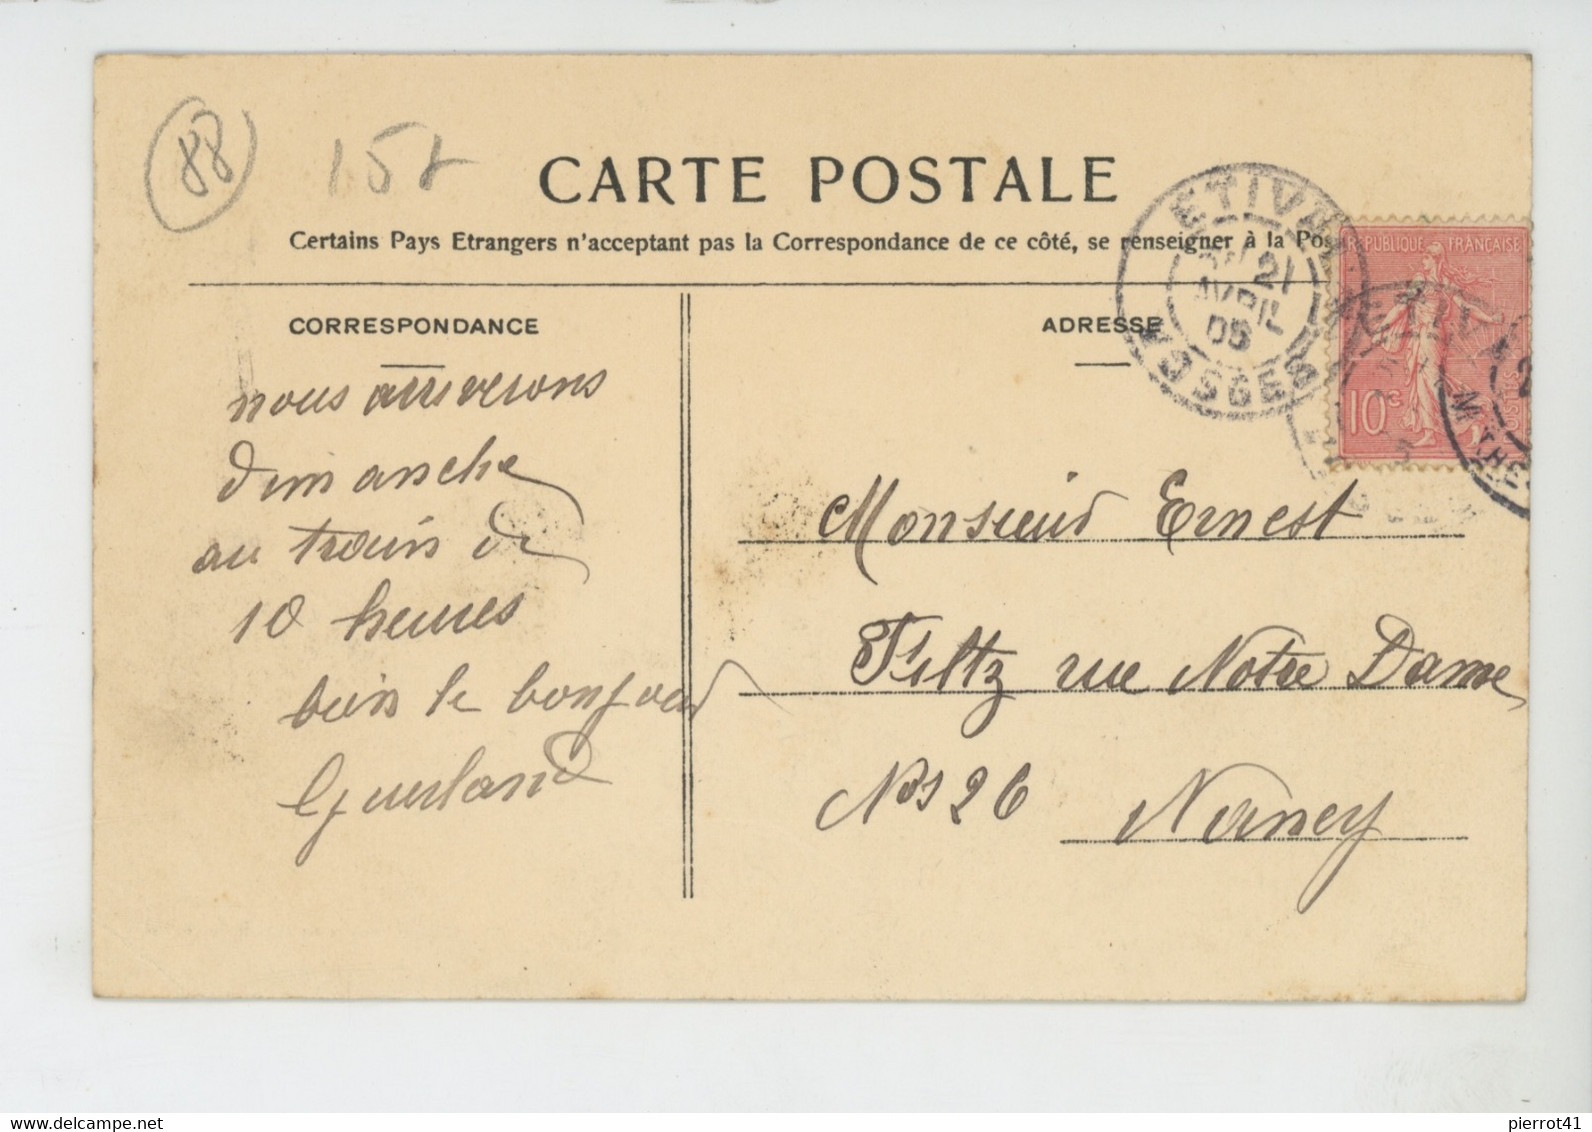 88
15F
CARTE POSTALE
Certains Pays Etrangers n'acceptant pas la Correspondance de ce côté, se renseigner à la Pos
CORRESPONDANCE
ADRESSE
ETIVAL
21
AVRIL
05
VOSGES
REPUBLIQUE FRANÇAISE
10c
POSTES
nous arriverons
dimanche
au train de
10 heures
bien le bonjour
Guerland
Monsieur Ernest
Filtz rue Notre Dame
No 26 Nancy
delcampe.net
pierrot41